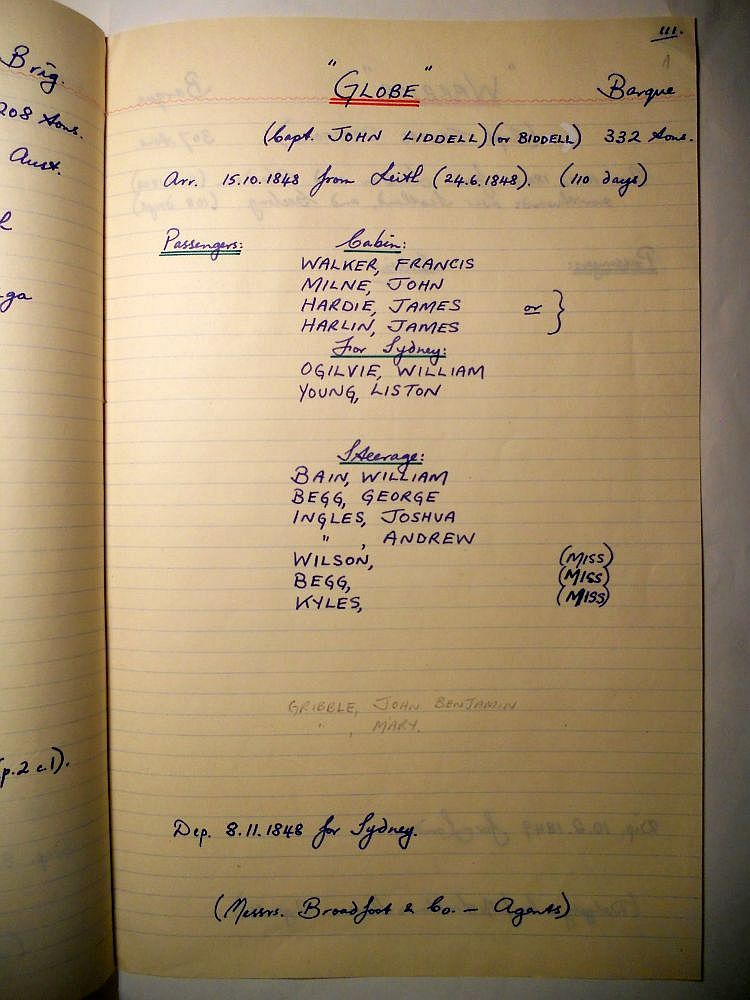 Brig.
208 tons.
Aust.
ga
(p.2 c.1).
111.
"GLOBE" Barque
(Capt. JOHN LIDDELL) (or BIDDELL) 332 tons.
Arr. 15.10.1848 from Leith (24.6.1848). (110 days)
Passengers: Cabin:
WALKER, FRANCIS
MILNE, JOHN
HARDIE, JAMES or }
HARLIN, JAMES
For Sydney:
OGILVIE, WILLIAM
YOUNG, LISTON
Steerage:
BAIN, WILLIAM
BEGG, GEORGE
INGLES, JOSHUA
" , ANDREW
WILSON, (MISS)
BEGG, (MISS)
KYLES, (MISS)
GRIBBLE, JOHN BENJAMIN
" , MARY.
Dep. 8.11.1848 for Sydney.
(Messrs. Broadfoot & Co. — Agents)